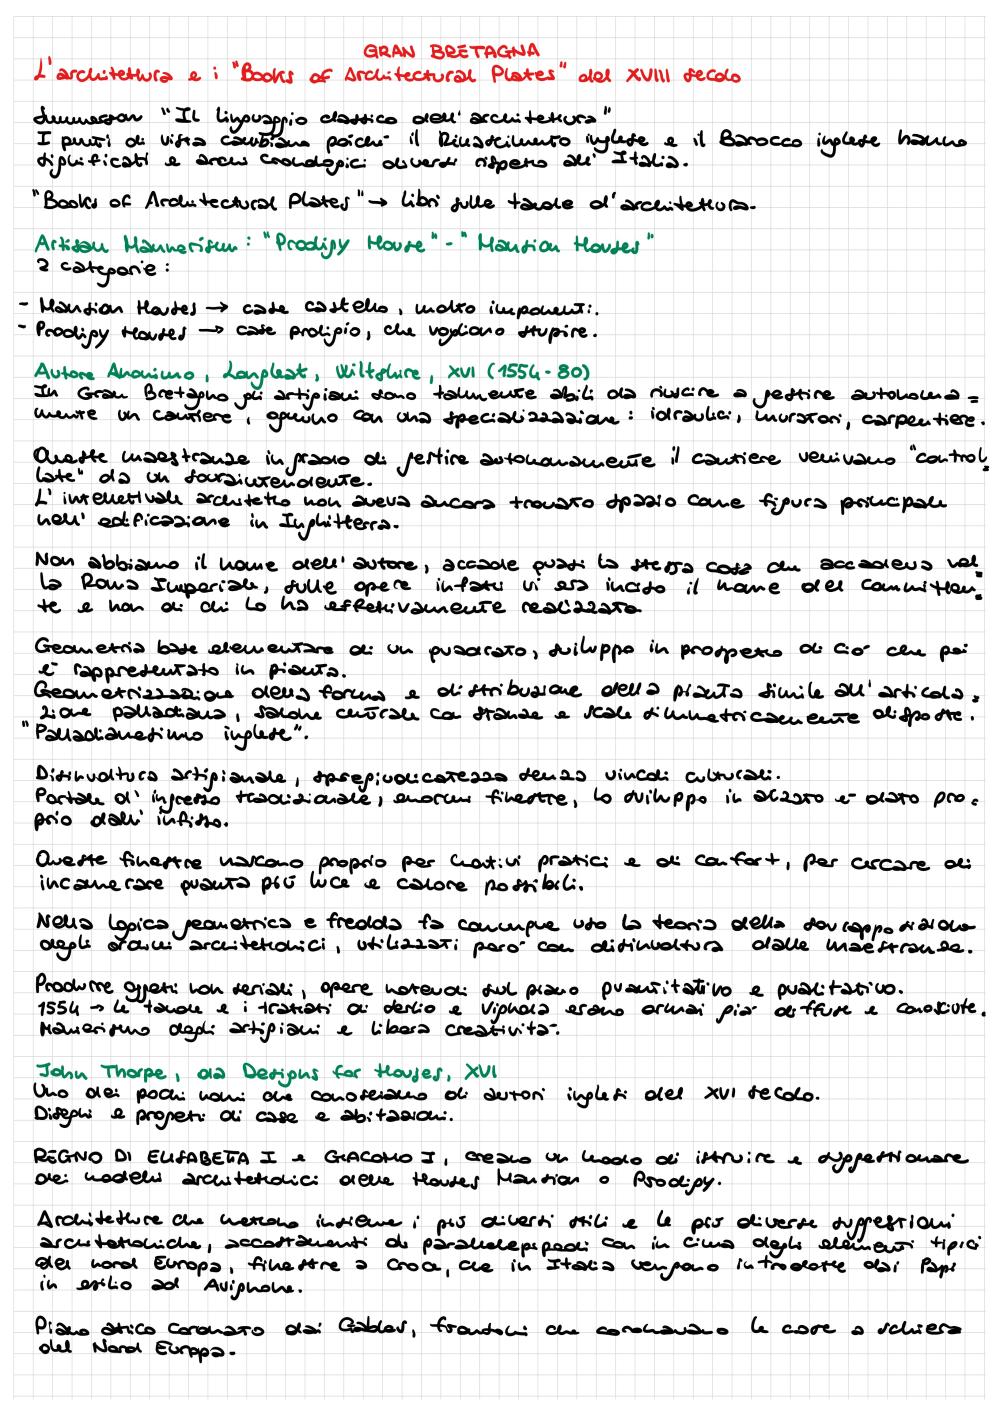 GRAN BRETAGNA
L'architettura e i "Books of Architectural Plates" del XVIII secolo
Summerson "Il linguaggio classico dell'architettura"
I punti di vista cambiano poiché il Rinascimento inglese e il Barocco inglese hanno
significati e archi cronologici diversi rispetto all'Italia.
"Books of Architectural Plates" → libri sulle tavole d'architettura.
Artisan Mannerism: "Prodigy House" - "Mansion Houses"
2 categorie:
- Mansion Houses → case castello, molto imponenti.
- Prodigy Houses → case prodigio, che vogliono stupire.
Autore Anonimo, Longleat, Wiltshire, XVI (1554-80)
In Gran Bretagna gli artigiani sono talmente abili da riuscire a gestire autonoma=
mente un cantiere, ognuno con una specializzazione: idraulici, muratori, carpentiere.
Queste maestranze in grado di gestire autonomamente il cantiere venivano "control=
late" da un sovraintendente.
L'intellettuale architetto non aveva ancora trovato spazio come figura principale
nell'edificazione in Inghilterra.
Non abbiamo il nome dell'autore, accade quasi la stessa cosa che accadeva nel=
la Roma Imperiale, sulle opere infatti vi era inciso il nome del committen=
te e non di chi lo ha effettivamente realizzato
Geometria base elementare di un quadrato, sviluppo in prospetto di ciò che poi
è rappresentato in pianta.
Geometrizzazione della forma e distribuzione della pianta simile all'articola=
zione palladiana, salone centrale con stanze e scale simmetricamente disposte.
"Palladianesimo inglese".
Disinvoltura artigianale, spregiudicatezza senza vincoli culturali.
Portale d'ingresso tradizionale, enormi finestre, lo sviluppo in alzato è dato pro=
prio dall'infisso.
Queste finestre nascono proprio per motivi pratici e di confort, per cercare di
incamerare quanta più luce e calore possibili.
Nella logica geometrica e fredda fa comunque uso la teoria della sovrapposizione
degli ordini architettonici, utilizzati però con disinvoltura dalle maestranze.
Produrre oggetti non seriali, opere notevoli sul piano quantitativo e qualitativo.
1554 → le tavole e i trattati di Serlio e Vignola erano ormai già diffuse e conosciute.
Manierismo degli artigiani e libera creatività.
John Thorpe, da Designs for Houses, XVI
Uno dei pochi nomi che conosciamo di autori inglesi del XVI secolo.
Disegni e progetti di case e abitazioni.
REGNO DI ELISABETTA I e GIACOMO I, creano un modo di istruire e suggestionare
dei modelli architettonici delle Houses Mansion o Prodigy.
Architetture che mettono insieme i più diversi stili e le più diverse suggestioni
architettoniche, accostamenti di parallelepipedi con in cima degli elementi tipici
del nord Europa, finestre a croce, che in Italia vengono introdotte dai Papi
in esilio ad Avignone.
Piano attico coronato dai Gables, frontoni che coronavano le case a schiera
del Nord Europa.